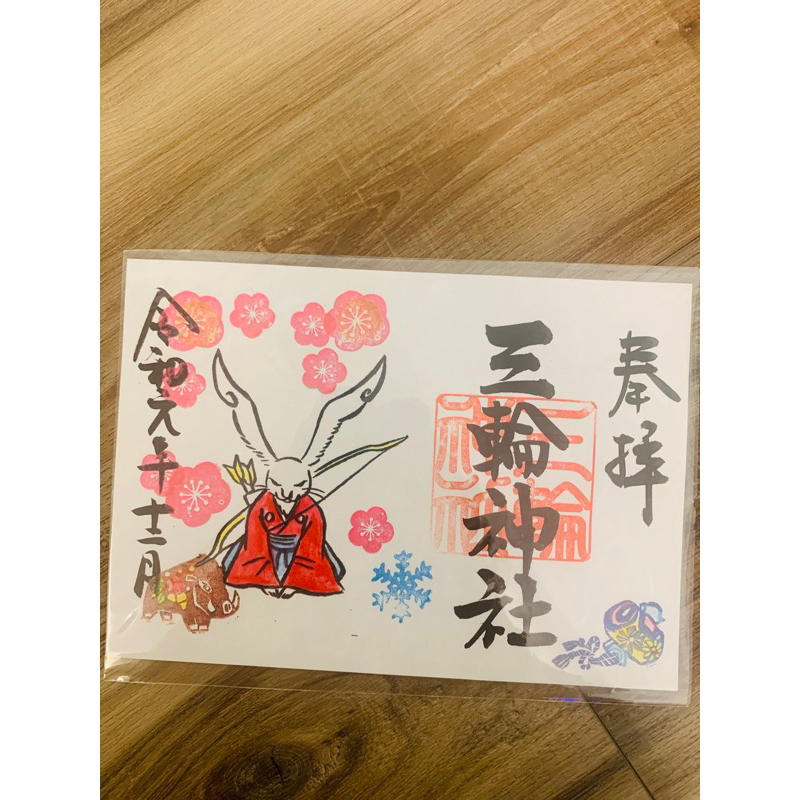 奉拝
三輪神社
三輪神社
令和元年十二月